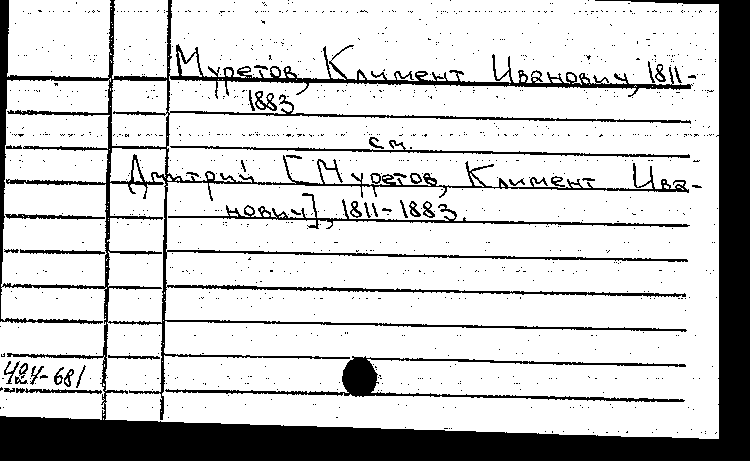 Муретов, Климент Иванович, 1811-
1883
см.
Дмитрий [Муретов, Климент Ива-
нович], 1811-1883.
424-681